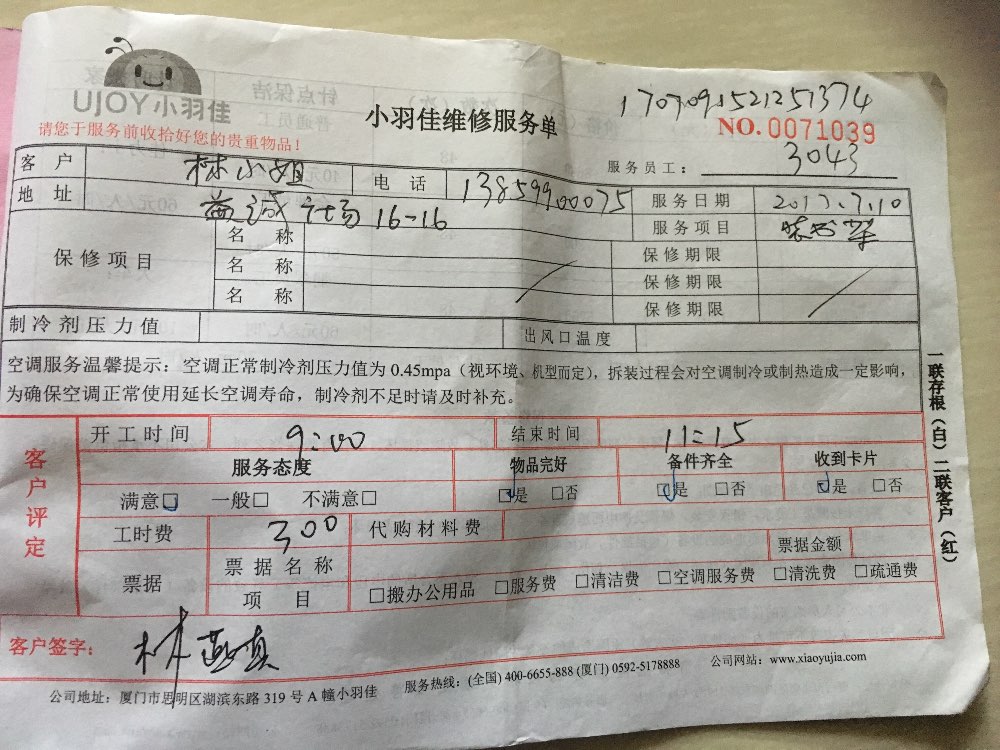 UJOY小羽佳
请您于服务前收拾好您的贵重物品！
小羽佳维修服务单
1707091521251374
NO.0071039
服务员工：3043
客户 林小姐 电话 13859900075 服务日期 2017.7.10
地址 益诚广场 16-16 服务项目 装书架
保修项目 名称 保修期限
名称 保修期限
名称 保修期限
制冷剂压力值 出风口温度
空调服务温馨提示：空调正常制冷剂压力值为0.45mpa（视环境、机型而定），拆装过程会对空调制冷或制热造成一定影响，
为确保空调正常使用延长空调寿命，制冷剂不足时请及时补充。
客户评定
开工时间 9:00 结束时间 11:15
服务态度 物品完好 备件齐全 收到卡片
满意□ 一般□ 不满意□ □是 □否 □是 □否 □是 □否
工时费 300 代购材料费
票据 票据名称 票据金额
项目 □搬办公用品 □服务费 □清洁费 □空调服务费 □清洗费 □疏通费
客户签字：林燕真
公司地址：厦门市思明区湖滨东路319号A幢小羽佳 服务热线：(全国) 400-6655-888 (厦门) 0592-5178888 公司网站：www.xiaoyujia.com
一联存根（白）二联客户（红）